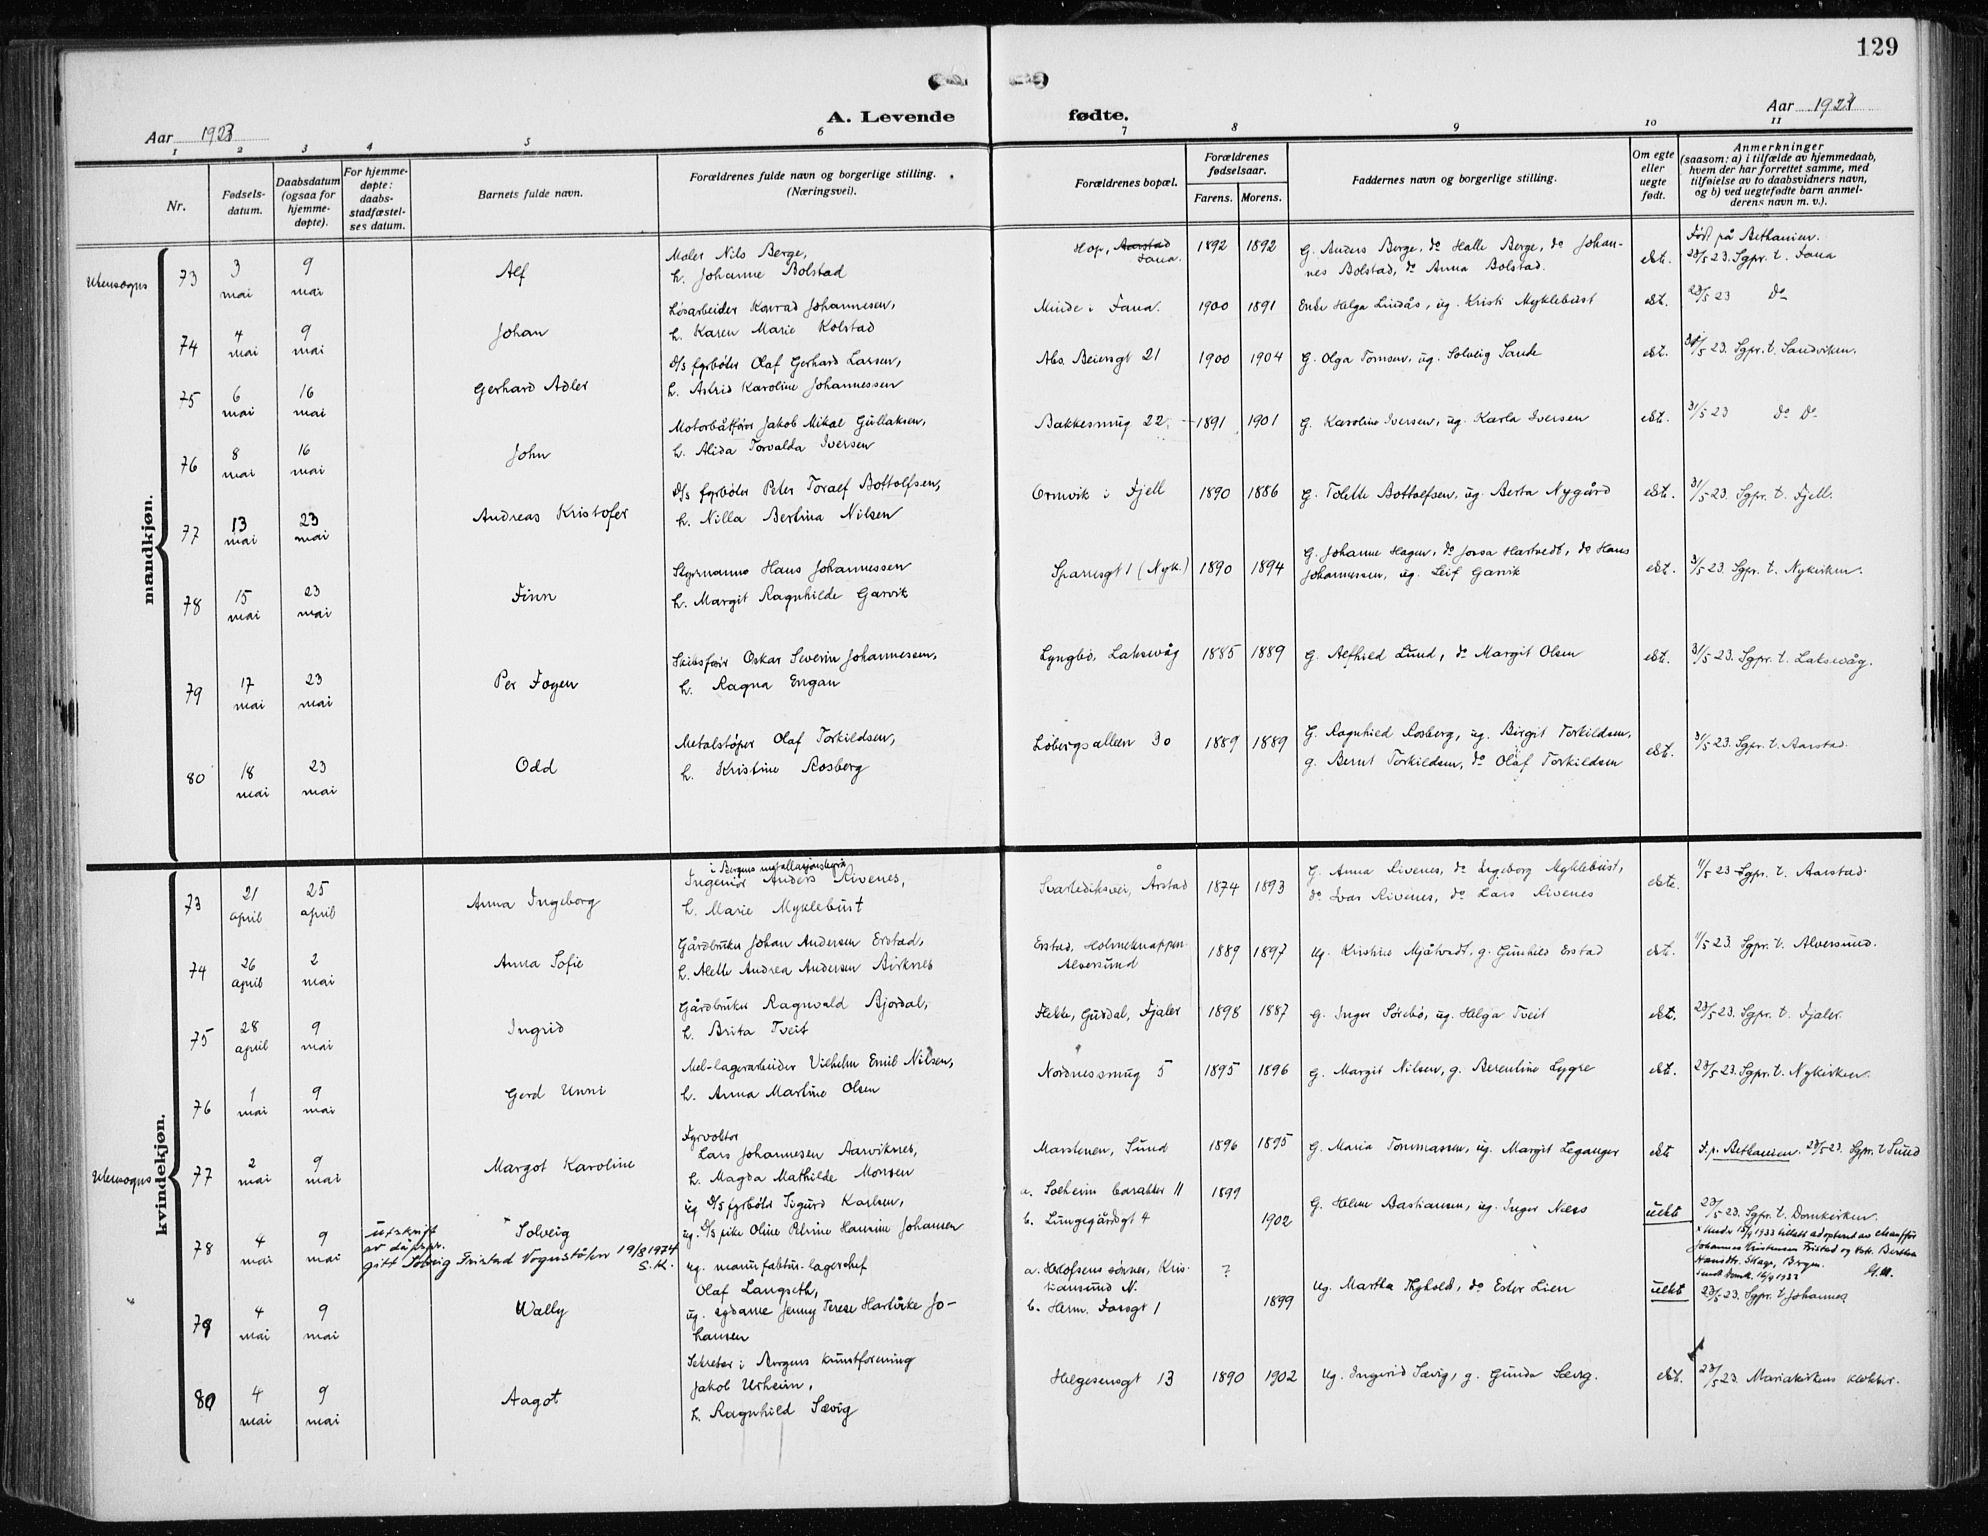 129
A. Levende fødte.
Aar 1923
Aar 1923
1 2 3 4 5 6 7 8 9 10 11
Nr.
Fødsels-
datum.
Daabsdatum
(ogsaa for
hjemme-
døpte).
For hjemme-
døpte:
daabs-
stadfæstel-
ses datum.
Barnets fulde navn.
Forældrenes fulde navn og borgerlige stilling.
(Næringsvei).
Forældrenes bopæl.
Forældrenes
fødselsaar.
Farens. Morens.
Faddernes navn og borgerlige stilling.
Om egte
eller
uegte
født.
Anmerkninger
(saasom: a) i tilfælde av hjemmedaab,
hvem der har forrettet samme, med
tilføielse av to daabsvidners navn,
og b) ved uegtefødte barn anmel-
derens navn m. v.).
mandkjøn.
Utensogns
73 3 mai 9 mai Alf
Maler Nils Berge,
h. Johanne Bolstad
Hop, Aarstad
Fana.
1892 1892
G. Anders Berge, do Halle Berge, do Johan-
nes Bolstad, do Anna Bolstad.
ekt.
Født på Bethanien.
23/5 23. Sgpr. t. Fana
74 4 mai 9 mai Johan
Løsarbeider Konrad Johannesen,
h. Karen Marie Kolstad
Minde i Fana.
1900 1891
Enke Helga Lindås, ug. Kristi Myklebust
ekt.
23/5 23 do
75 6 mai 16 mai Gerhard Adler
D/s fyrbøter Olaf Gerhard Larsen,
h. Astrid Karoline Johannessen
Abs. Beiersgt 21
1900 1904
G. Olga Tomsen, ug. Solveig Sande
ekt.
31/5 23. Sgpr. t. Sandviken.
76 8 mai 16 mai John
Motorbåtfører Jakob Mikal Gullaksen,
h. Alida Torvalda Iversen
Bakkesmug 22.
1891 1901
G. Karoline Iversen, ug. Karla Iversen
ekt.
31/5 23 do do
77 13 mai 23 mai Andreas Kristofer
D/s fyrbøter Peter Toralf Bottolfsen,
h. Nilla Bertina Nilsen
Ormvik i Fjell
1890 1886
G. Tolette Bottolfsen, ug. Berta Nygård
ekt.
31/5 23. Sgpr. t. Fjell.
78 15 mai 23 mai Finn
Styrmann Hans Johannessen
h. Margit Ragnhilde Garvik
Sparresgt 1 (Nyk.)
1890 1894
G. Johanne Hagen, do Jossa Hartvedt, do Hans
Johannessen, ug. Leif Garvik
ekt.
31/5 23. Sgpr. t. Nykirken.
79 17 mai 23 mai Per Foyen
Skibsfører Oskar Severin Johannessen,
h. Ragna Engan
Lyngbø, Laksevåg
1885 1889
G. Alfhild Lund, do Margit Olsen
ekt.
31/5 23. Sgpr. t. Laksevåg.
80 18 mai 23 mai Odd
Metalstøper Olaf Torkildsen,
h. Kristine Rosberg
Løbergsalleen 30
1889 1889
G. Ragnhild Rosberg, ug. Birgit Torkildsen,
g. Bernt Torkildsen, do Olaf Torkildsen
ekt.
31/5 23. Sgpr. t. Aarstad.
kvindekjøn.
73 21 april 25 april Anna Ingeborg
i Bergens installasjonsbyrå
Ingeniør Anders Rivenes,
h. Marie Myklebust
Svartediksvei, Årstad
1874 1893
G. Anna Rivenes, do Ingeborg Myklebust,
do Ivar Rivenes, do Lars Rivenes
ekte.
11/5 23 Sgpr. t. Aarstad.
74 26 april 2 mai Anna Sofie
Gårdbruker Johan Andersen Erstad,
h. Alette Andrea Andersen Birknes
Erstad, Holmeknappen
Alversund
1889 1897
Ug. Kristine Mjåtvedt, g. Gunhild Erstad
ekt.
11/5 23. Sgpr. t. Alversund.
75 28 april 9 mai Ingrid
Gårdbruker Ragnvald Bjordal,
h. Brita Tveit
Flekke, Guddal, Fjaler
1898 1887
G. Inger Sørebø, ug. Helga Tveit
ekt.
23/5 23. Sgpr. t. Fjaler.
76 1 mai 9 mai Gerd Unni
Mel-lagerarbeider Vilhelm Emil Nilsen,
h. Anna Martine Olsen
Nordnessmug 5
1895 1896
g. Margit Nilsen, g. Berentine Lygre
ekt.
23/5 23. Sgpr. t. Nykirken.
Utensogns
77 2 mai 9 mai Margot Karoline
Fyrvokter
Lars Johannesen Aarviknes,
h. Magda Mathilde Monsen
Marstenen, Sund
1896 1895
G. Maria Tommassen, ug. Margit Leganger
ekt
F. p. Bethanien. 23/5 23. Sgpr. t Sund
78 4 mai 9 mai
utskrift
av dåpspr.
gitt Solveig Fristad Vognstølen 19/8 1974
S.K.
Solveig
ug D/s fyrbøter Sigurd Karlsen,
ug. D/s pike Oline Petrine Hansine Johansen
a. Solheim barakker 11
b. Lungegårdsgt 4
1899
1902
G. Helene Bastiansen, ug. Inger Næss
uekte
23/5 23. Sgpr. t. Domkirken.
x Under 15/9 1933 tillatt adoptert av chauffør
Johannes Kristensen Fristad og hstr. Berthea
Hansdtr. Skage, Bergen.
79 4 mai 9 mai Wally
ug. manufaktur-lagerchef
Olaf Langseth,
ug. sydame Jenny Terese Hartvike Jo-
hansen
a. Helofsens sønner, Kris-
tiansund N.
b. Herm. Fossgt 1
?
1899
Ug. Martha Thyhold, do Ester Lien
uekte
23/5 23. Sgpr. t. Johannes
80 4 mai 9 mai Aagot
Sekretær i Bergens Kunstforening
Jakob Urheim,
h. Ragnhild Sævig
Helgesensgt 13
1890 1902
Ug. Ingerid Sævig, g. Gunda Sævig.
ekt.
23/5 23. Mariakirkens klokker.